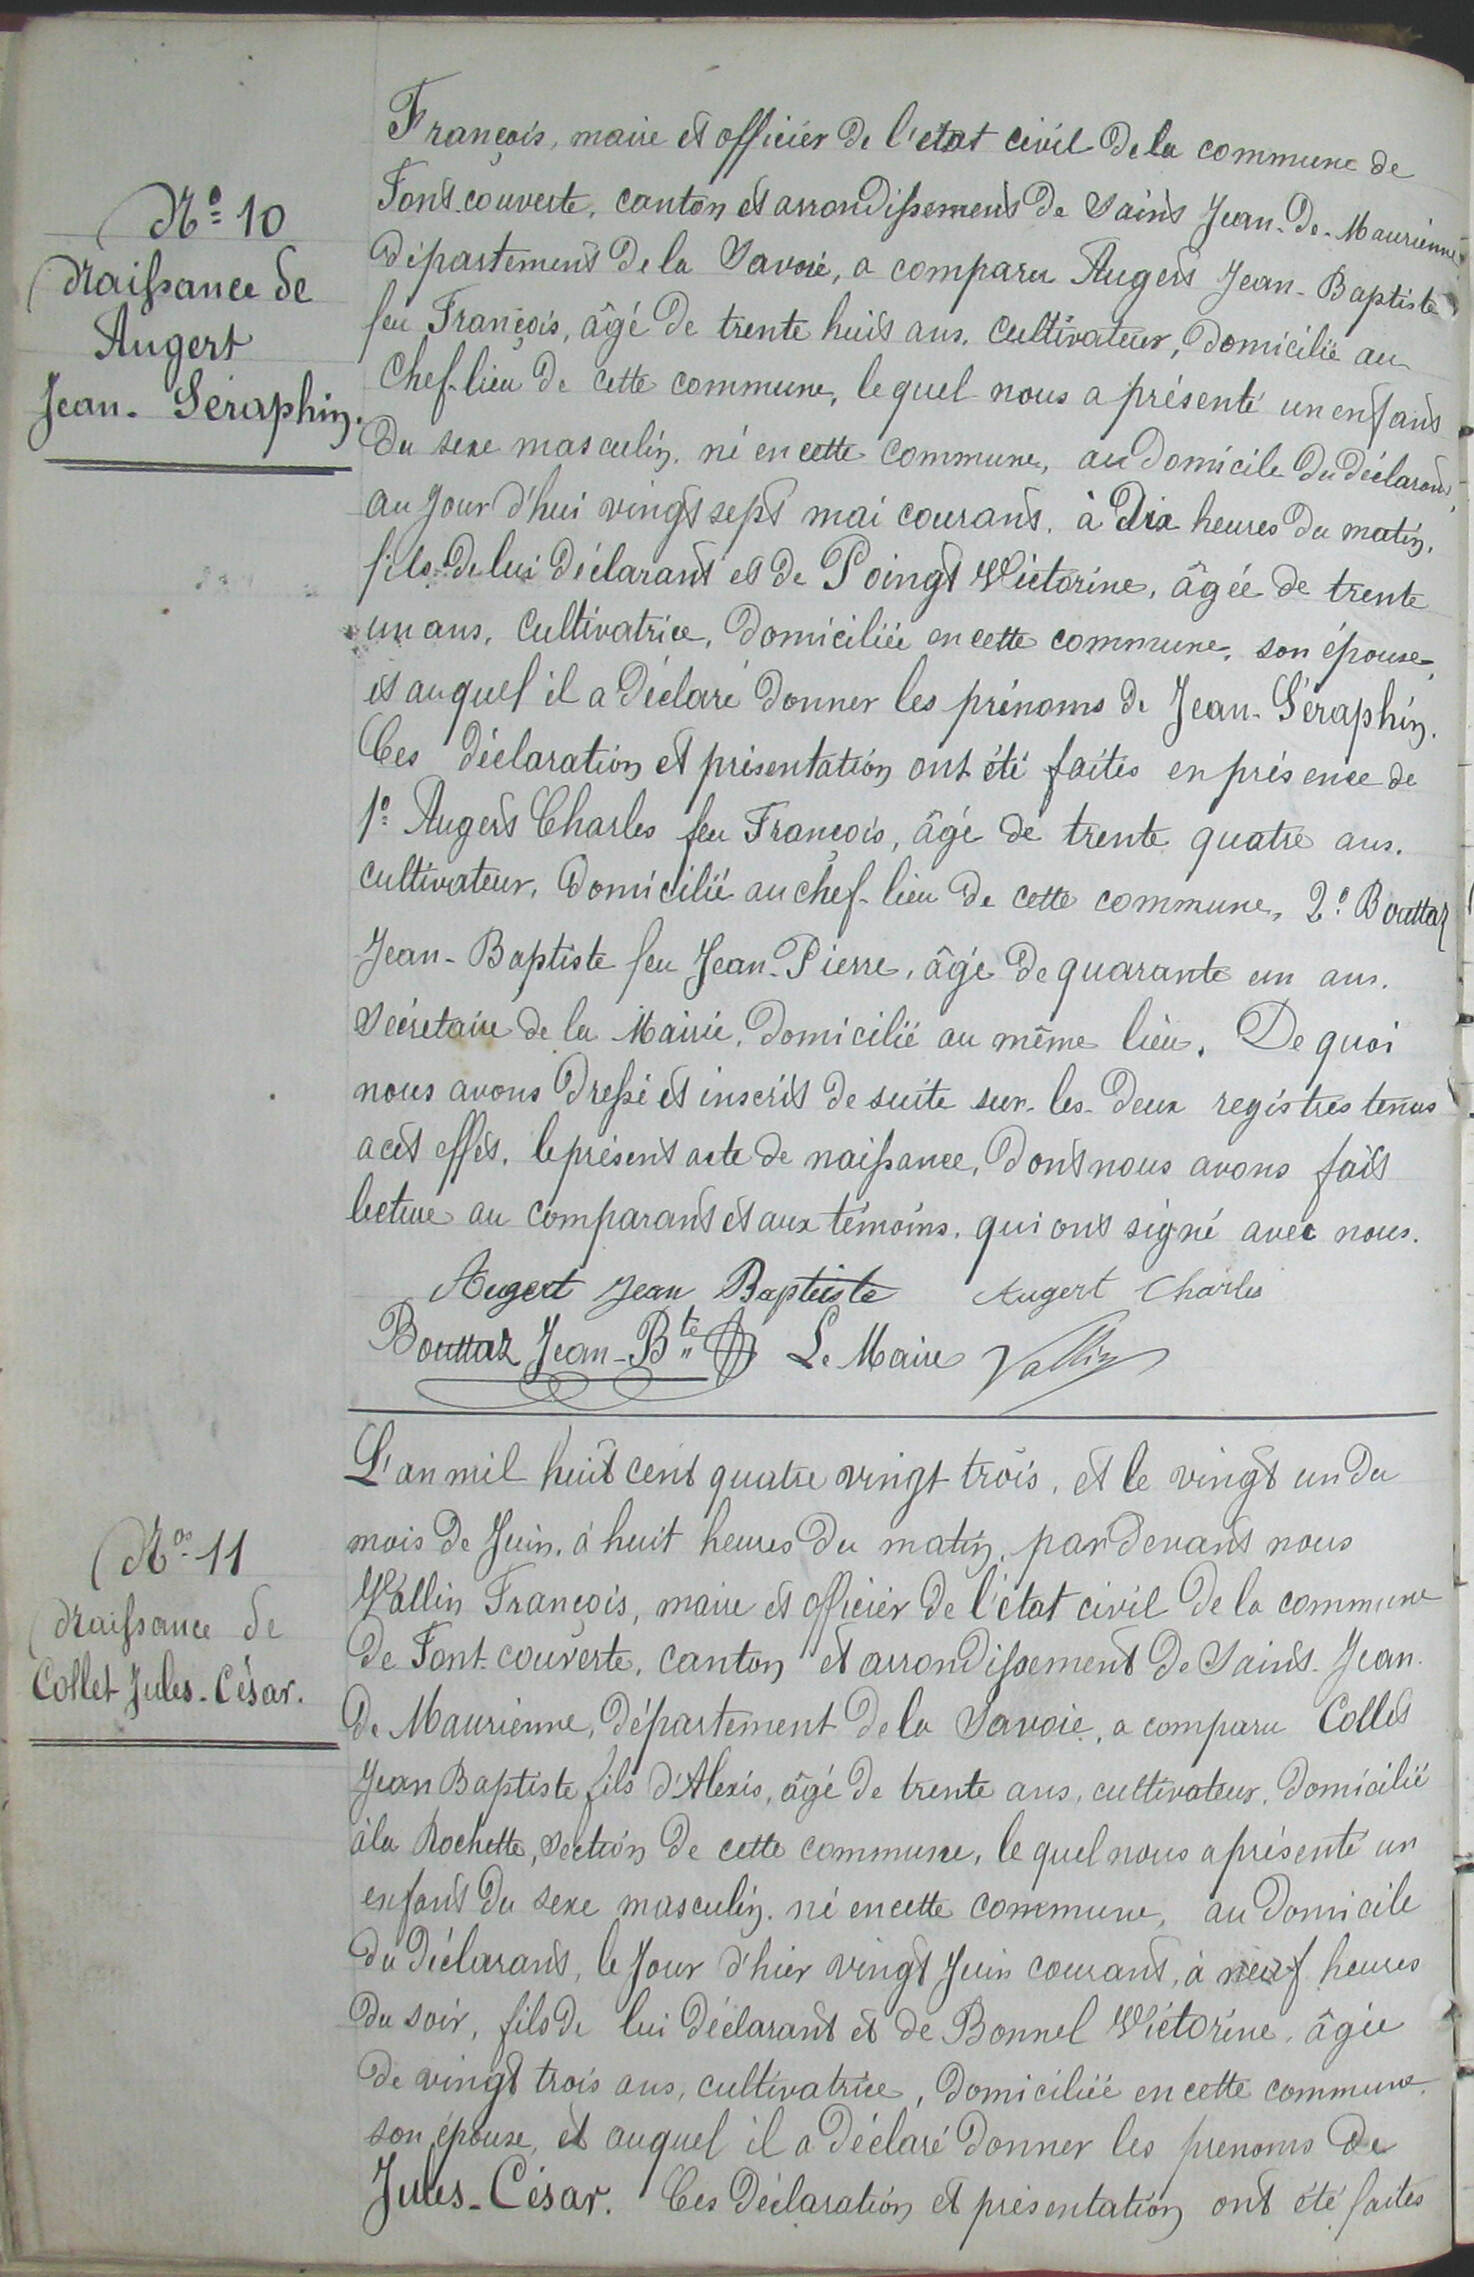 François, maire et officier de l'état civil de la commune de
Font-couverte, canton et arrondissement de Saint Jean-de-Maurienne,
département de la Savoie, a comparu Augert Jean-Baptiste
feu François, âgé de trente huit ans, cultivateur, domicilié au
Chef-lieu de cette commune, lequel nous a présenté un enfant
du sexe masculin, né en cette commune, au domicile du déclarant,
au jour d'hui vingt sept mai courant, à dix heures du matin,
fils de lui déclarant et de Poingt Victorine, âgée de trente
un ans, cultivatrice, domiciliée en cette commune, son épouse,
et auquel il a déclaré donner les prénoms de Jean-Séraphin.
Ces déclaration et présentation ont été faites en présence de
1º Augert Charles feu François, âgé de trente quatre ans,
cultivateur, domicilié au chef-lieu de cette commune, 2º Bouttaz
Jean-Baptiste feu Jean-Pierre, âgé de quarante un ans,
Secrétaire de la Mairie, domicilié au même lieu. De quoi
nous avons dressé et inscrit de suite sur les deux registres tenus
a cet effet, le présent acte de naissance, dont nous avons fait
lecture au comparant et aux témoins, qui ont signé avec nous.
Augert Jean Baptiste Augert Charles
Bouttaz Jean-Bte Le Maire Vallin
Nº 10
Naissance de
Augert
Jean-Séraphin.
L'an mil huit cent quatre vingt trois, et le vingt un du
mois de Juin, à huit heures du matin, par devant nous
Vallin François, maire et officier de l'état civil de la commune
de Font-couverte, canton et arrondissement de Saint-Jean
de Maurienne, département de la Savoie, a comparu Collet
Jean Baptiste fils d'Alexis, âgé de trente ans, cultivateur, domicilié
à la Rochette, section de cette commune, le quel nous a présenté un
enfant du sexe masculin, né en cette commune, au domicile
du déclarant, le jour d'hier vingt Juin courant, à neuf heures
du soir, fils de lui déclarant et de Bonnel Victorine, âgée
de vingt trois ans, cultivatrice, domiciliée en cette commune,
son épouse, et auquel il a déclaré donner les prenoms de
Jules-César. Ces déclaration et présentation ont été faites
Nº 11
Naissance de
Collet Jules-César.